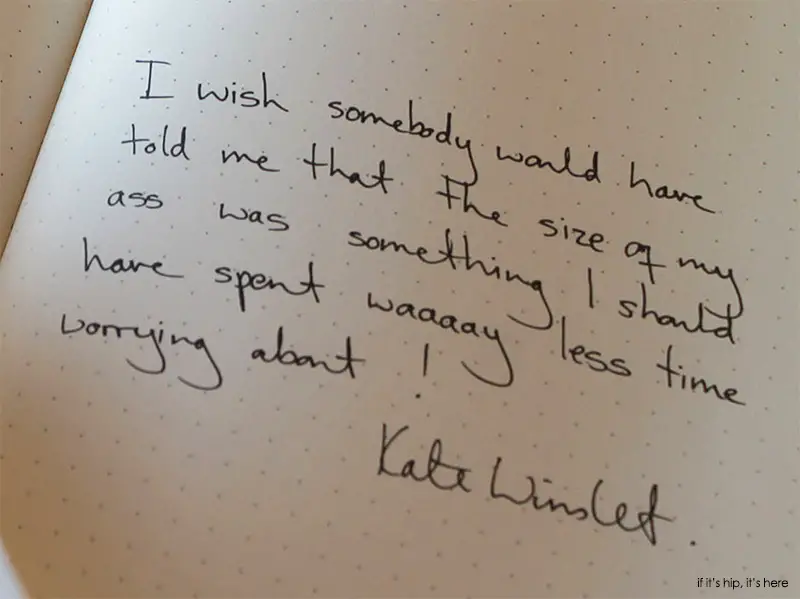 I wish somebody would have
told me that the size of my
ass was something I should
have spent waaaay less time
worrying about !
Kate Winslet.
if it's hip, it's here